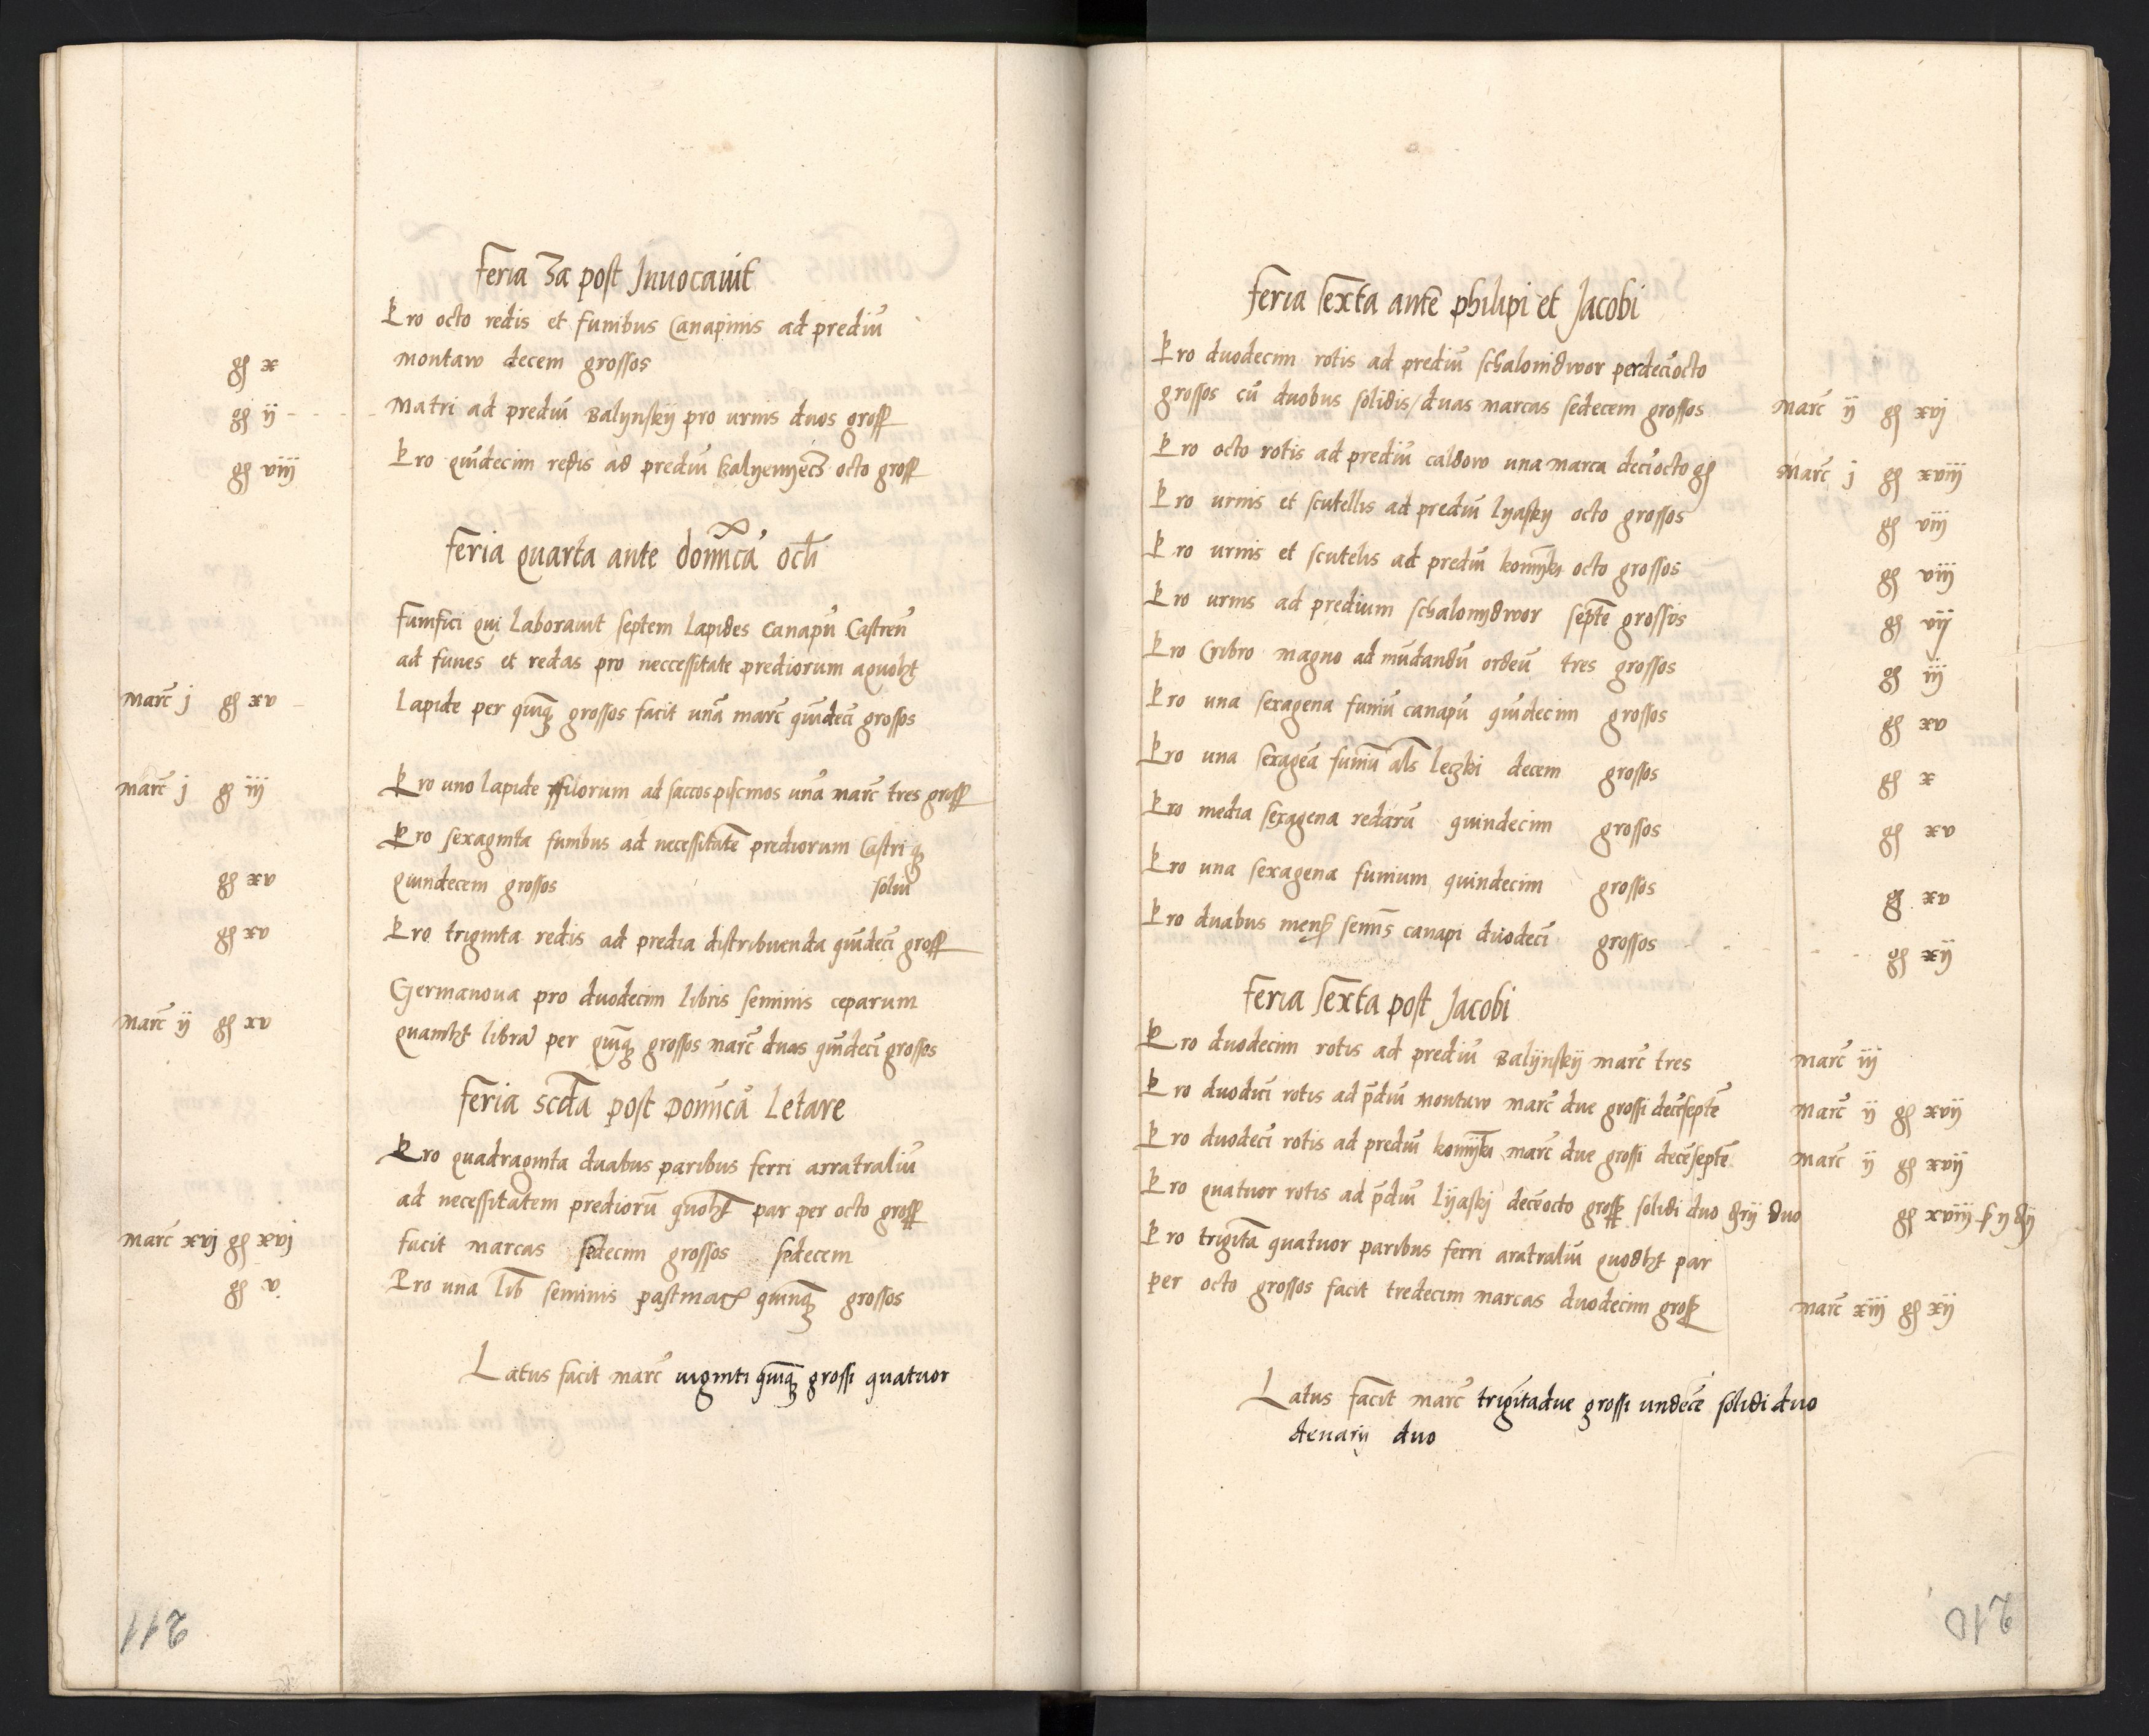 feria 3a post Inuocauit
Pro octo redis et funibus Canapinis ad prediū
gͬ x montaw decem grossos
gͬ ij Matri ad prediū Balijnskij pro urnis duos gross
gͬ viij Pro quīdecim redis ad prediū kalijemijecz octo gross
feria quarta ante domīcā ocłi
funifici qui Laborauit septem Lapides canapū Castreñ
ad funes et redas pro neccessitate prediorum a quolꝫt
Marc̄ j gͬ xv Lapide per quīqꝫ grossos facit unā marc̄ quīdecī grossos
Marc̄ j gͬ iij Pro uno lapide filorum ad saccos piscinos unā marc̄ tres gross
Pro sexaginta funibus ad necessitatē prediorum Castri qꝫ
gͬ xv quindecem grossos solui
gͬ xv Pro triginta redis ad predia distribuenda quīdecī gross
Germanova pro duodecim libris seminis ceparum
Marc̄ ij gͬ xv quamlꝫt librā per quīqꝫ grossos marc̄ duas quīdecī grossos
feria scd̄a post Domīcā Letare
Pro quadraginta duabus paribus ferri arratraliū
ad necessitatem prediorū quolꝫt par per octo gross
Marc̄ xvj gͬ xvj facit marcas sedecim grossos sedecem
gͬ v Pro una lib̄ seminis pastinac quinqꝫ grossos
Latus facit marc̄ uiginti quīqꝫ grossi quatuor
211
feria sexta antē philipi et Jacobi
Pro duodecim rotis ad prediū schalonidwor per deciocto
grossos cū duobus solidis/duas marcas sedecem grossos Marc̄ ij gͬ xvj
Pro octo rotis ad prediū caldow una marca deciocto gͬ Marc̄ j gͬ xviij
Pro urnis et scutellis ad prediū lyaskij octo grossos gͬ viij
Pro urnis et scutelis ad prediū konijki octo grossos gͬ viij
Pro urnis ad predium schalonijdwor septē grossos gͬ vij
Pro Cribro magno ad mūdandū ordeū tres grossos gͬ iij
Pro una sexagena funiū canapū quīdecim grossos gͬ xv
Pro una sexageā funiū als leczki decem grossos gͬ x
Pro media sexagena redarū quindecim grossos gͬ xv
Pro una sexagena funium quindecim grossos gͬ xv
Pro duabus mens semīs canapi duodecī grossos gͬ xij
feria sexta post Jacobi
Pro duodecim rotis ad prediū Balijnskij marc̄ tres Marc̄ iij
Pro duodicī rotis ad p̄diū montaw marc̄ due grossi decēseptē Marc̄ ij gͬ xvij
Pro duodecī rotis ad prediū konijki marc̄ due grossi decēseptē Marc̄ ij gͬ xvij
Pro quatuor rotis ad p̄diū lijaskj decēocto gross solidi duo đrij duo gͬ xviij ß ij đ ij
Pro trigīta quatuor paribus ferri aratraliū quodlꝫt par
per octo grossos facit tredecim marcas duodecim gross Marc̄ xiij gͬ xij
Latus facit marc̄ trigītadue grossi undecē solidi duo
denarij duo
210